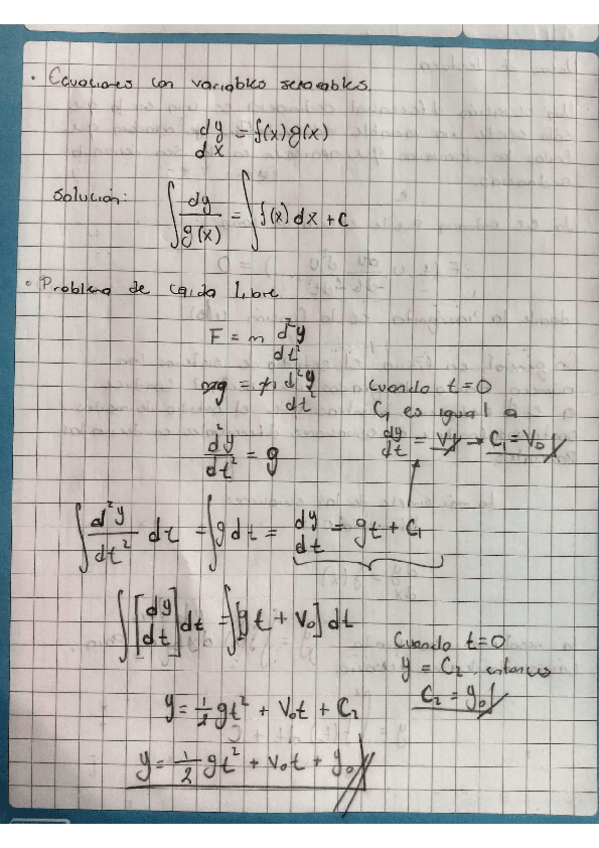 • Ecuaciones con variables separables.
dy/dx = f(x)g(x)
Solución: ∫ dy/g(x) = ∫ f(x) dx + C
• Problema de caída libre.
F = m d²y/dt²
mg = m d²y/dt²
Cuando t=0
C₁ es igual a
dy/dt = V₀ → C₁ = V₀
d²y/dt² = g
∫ d²y/dt² dt = ∫ g dt = dy/dt = gt + C₁
∫ [dy/dt] dt = ∫ [gt + V₀] dt
Cuando t=0
y = C₂, entonces
C₂ = y₀
y = 1/2 gt² + V₀t + C₂
y = 1/2 gt² + V₀t + y₀